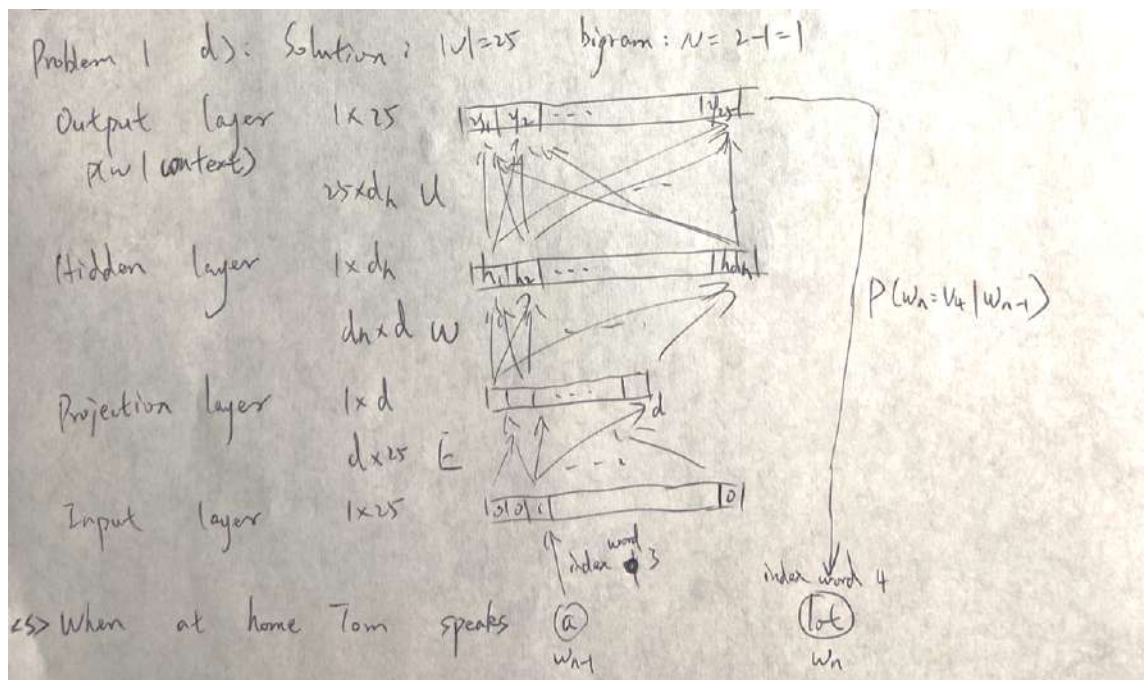 Problem 1 d): Solution: |V|=25 bigram: N = 2-1=1
Output layer 1×25 |y1|y2| ... |y25|
p(w|context)
25×dh U
Hidden layer 1×dh |h1|h2| ... |hdh|
P(wn=V4|wn-1)
dh×d W
Projection layer 1×d
d
d×25 E
Input layer 1×25 |0|0|1| |0|
index word 3
index word 4
<s> When at home Tom speaks a lot
wn-1 wn